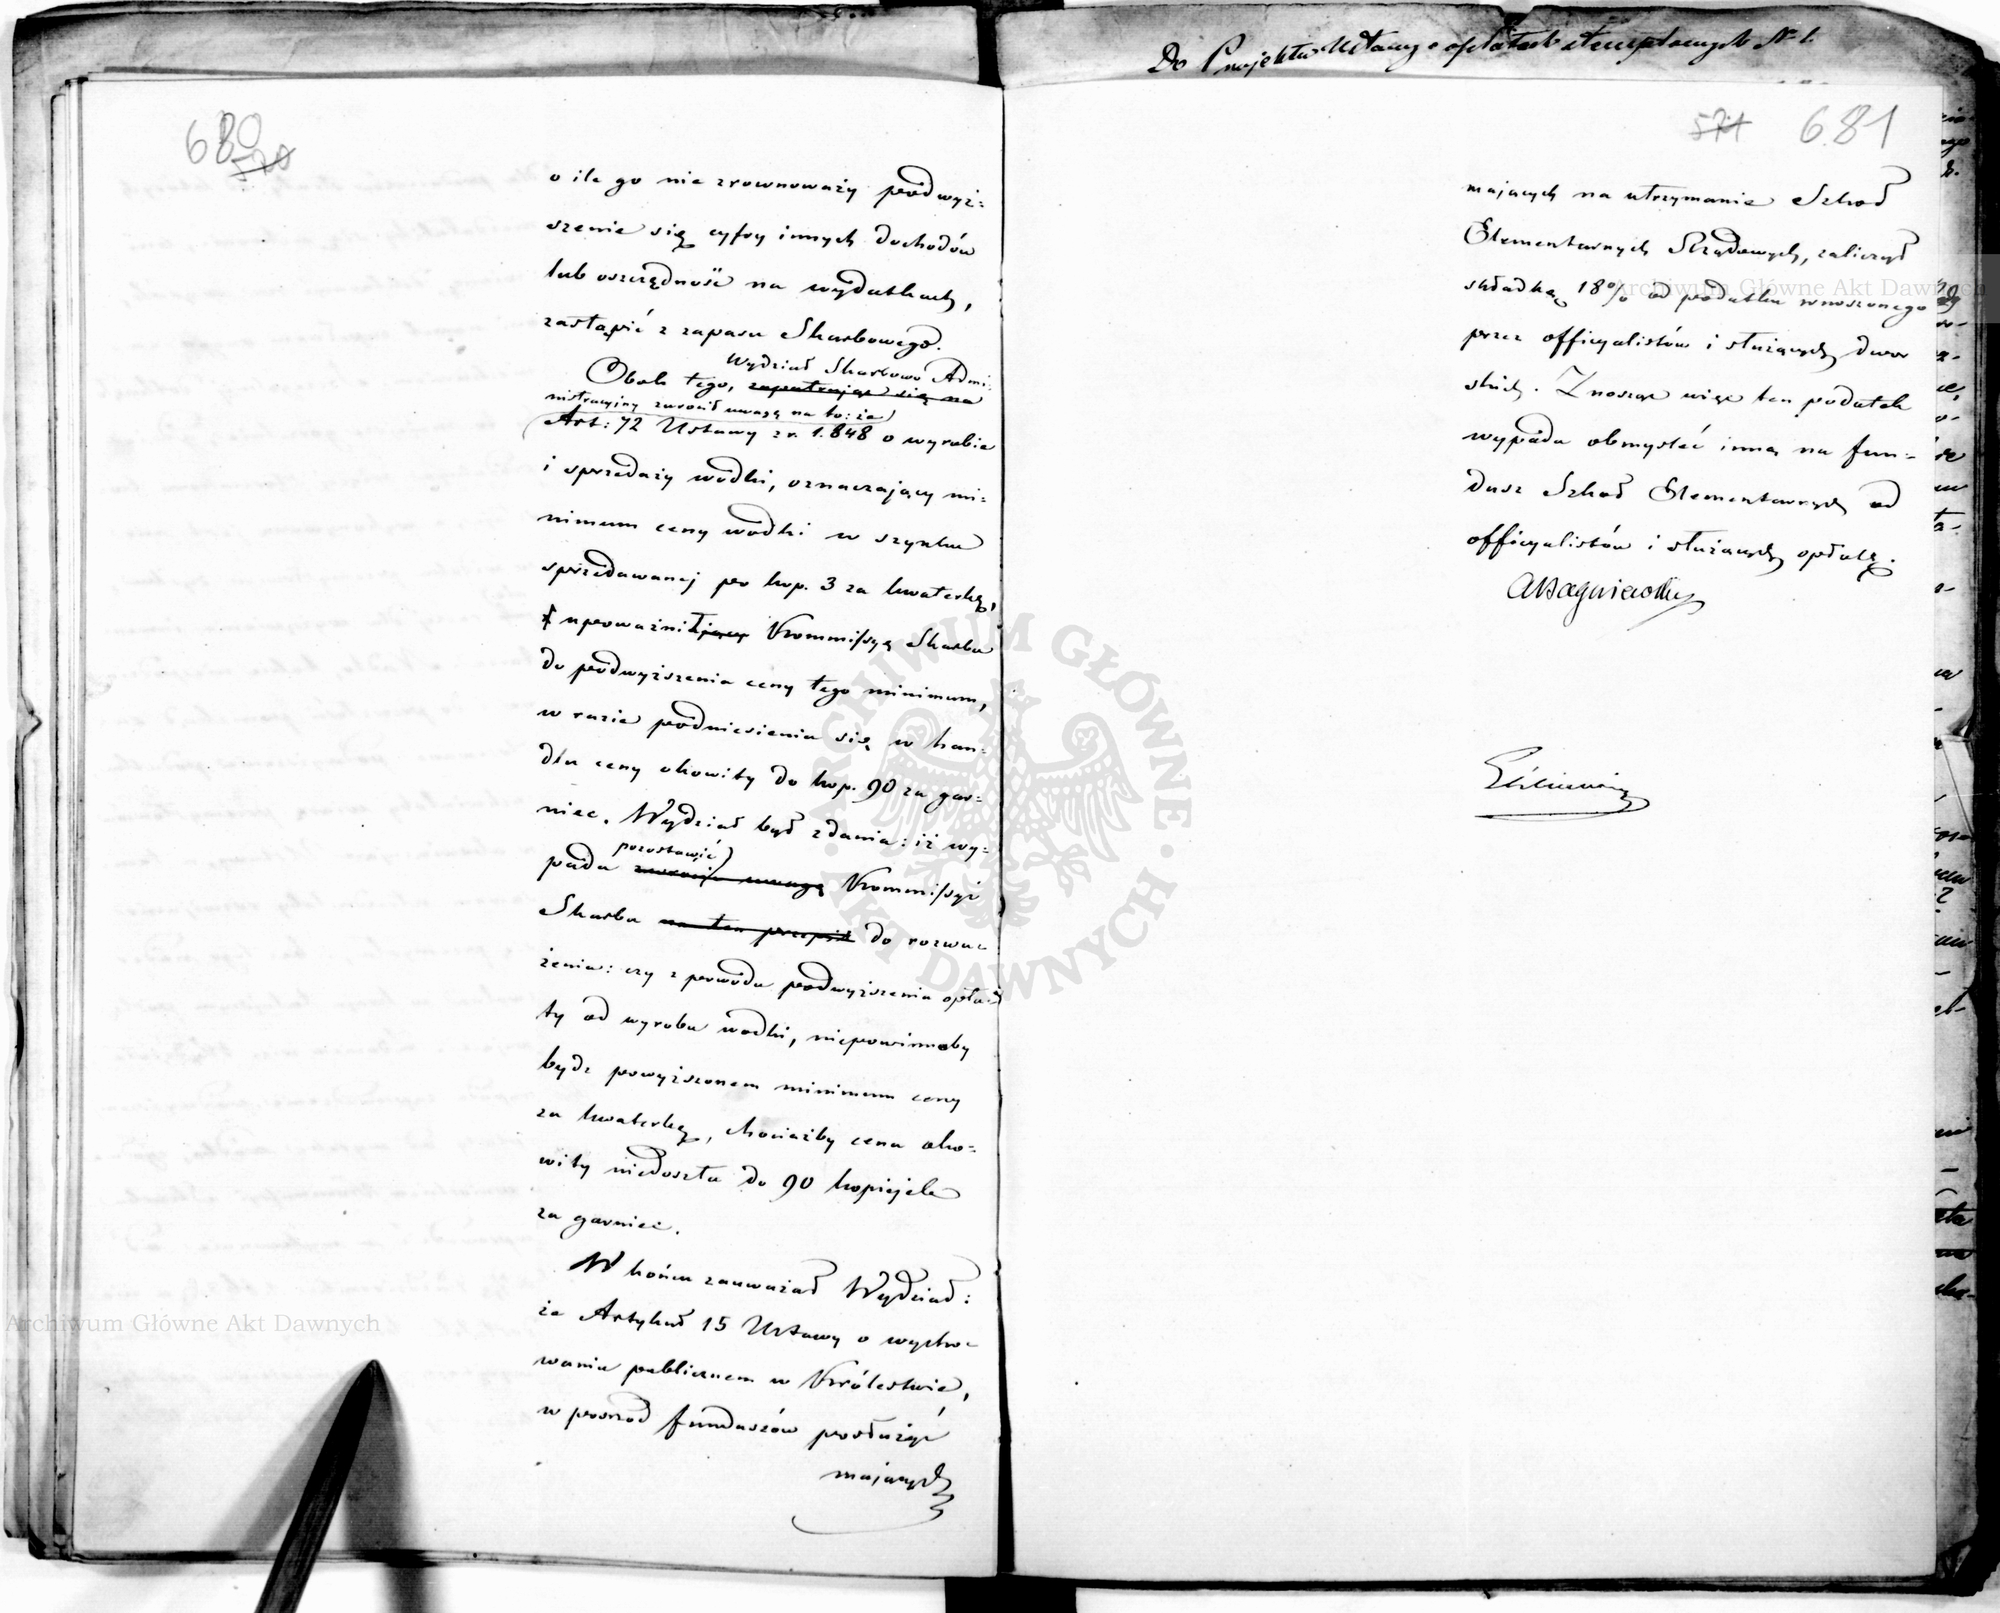 680
570
o ile go nie zrownoważy podwyż=
szenie się cyfry innych dochodów
lub oszczędność na wydatkach,
zastąpić z zapasu Skarbowego.
Wydział Skarbowo Admi=
Obok tego, zapatrując się na
nistracyjny zwrócił uwagę na to: że
Art: 72 Ustawy z r. 1848 o wyrobie
i sprzedaży wódki, oznaczający mi=
nimum ceny wódki w szynku
sprzedawanej po kop. 3 za kwaterkę,
upoważnił Kommissyą Skarbu
do podwyższenia ceny tego minimum,
w razie podniesienia się w han=
dlu ceny okowity do kop. 90 za gar=
niec. Wydział był zdania: iż wy=
pozostawić
pada zwrócić uwagę Kommissyi
Skarbu na ten przepis do rozwa=
żenia: czy z powodu podwyższenia opła
ty od wyrobu wódki, niepowinnoby
bydź powyższonem minimum ceny
za kwaterkę, chociażby cena oko=
wity niedoszła do 90 kopiejek
za garniec.
W końcu zauważał Wydział:
że Artykuł 15 Ustawy o wycho=
waniu publicznem w Królestwie,
w pośród funduszów posłużyć
mających
Do Projektu Ustawy o opłatach stemplowych N 1.
571 681
mających na utrzymanie Szkoł
Elementarnych Rządowych, zaliczył
składkę 18% od podatku wnoszonego
przez officyalistów i służących dwor
skich. Znosząc więc ten podatek
wypada obmyśleć inną na fun=
dusz Szkoł Elementarnych od
officyalistów i służących opłatę.
ARCHIWUM GŁÓWNE
AKT DAWNYCH
Archiwum Główne Akt Dawnych
Archiwum Główne Akt Dawnych